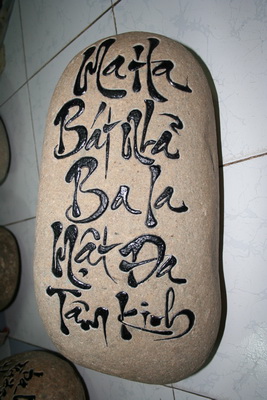 Ma Ha
Bát Nhã
Ba la
Mật Đa
Tâm Kinh